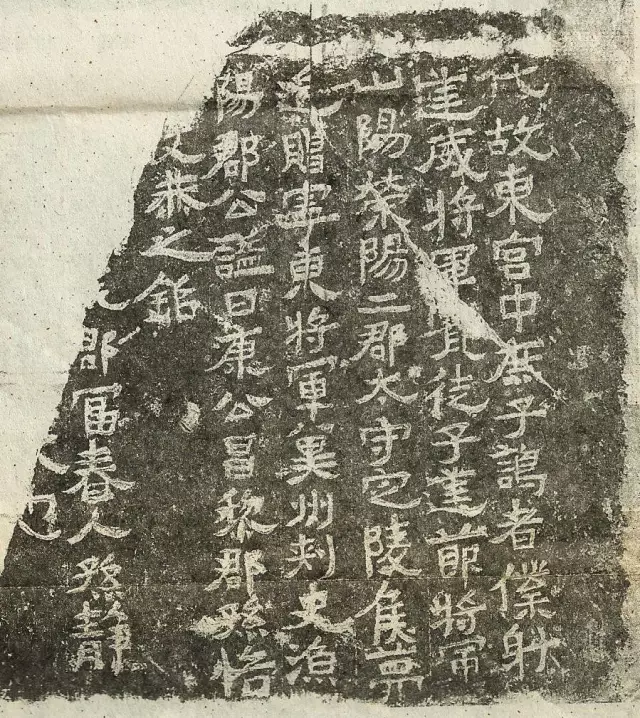 代故東宮中庶子謁者僕射
建威將軍徒子建節將軍
山陽榮陽二郡太守定陵侯薨
追贈寧東將軍冀州刺史漁
陽郡公諡曰康公昌黎郡孫恪
文恭之銘
郡富春人孫靜